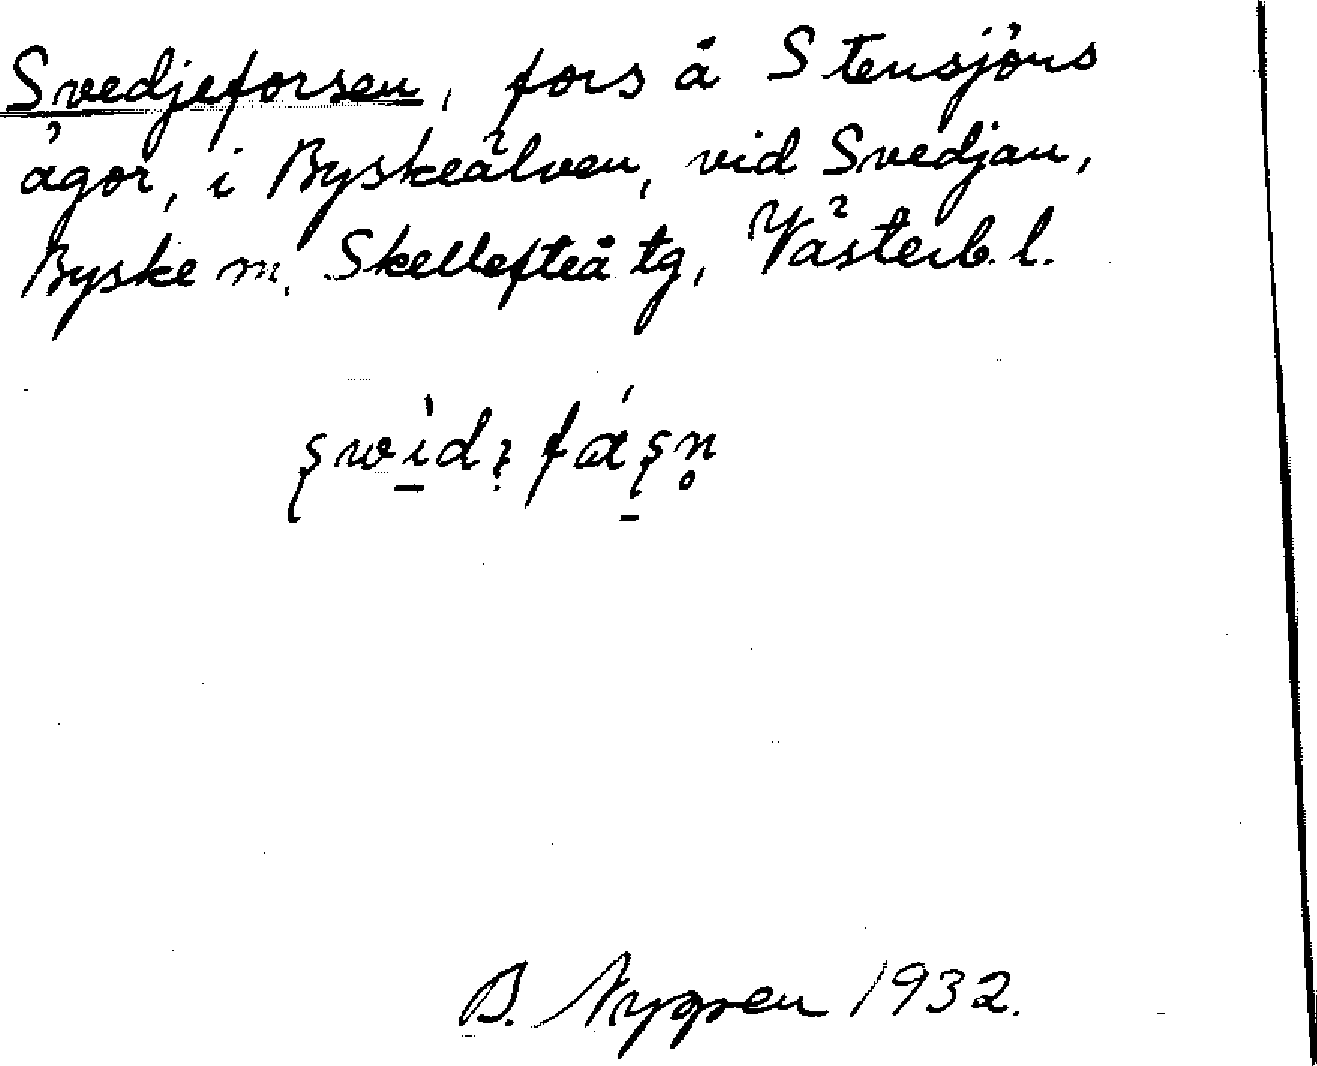 Svedjeforsen, fors å Stensjöns
ägor, i Byskeälven, vid Svedjan,
Byske m. Skellefteå tg, Västerb. l.
B. Nygren 1932.